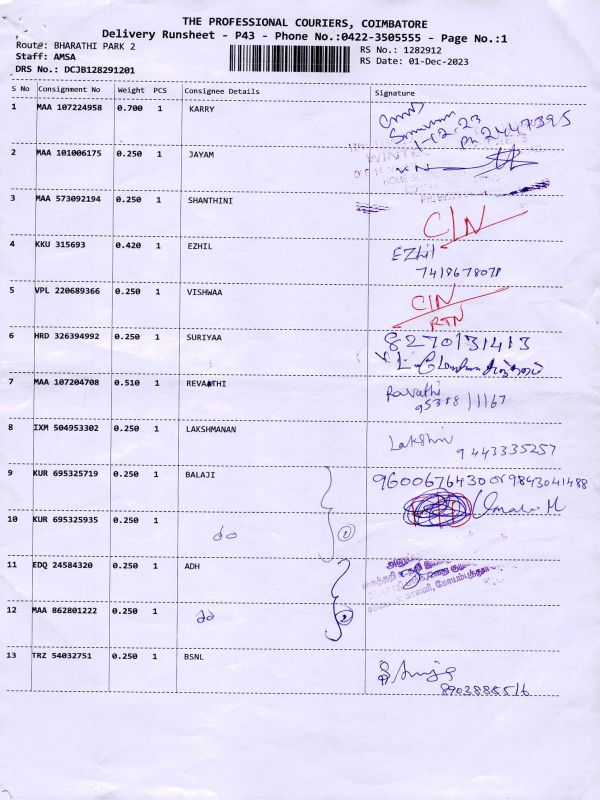 THE PROFESSIONAL COURIERS, COIMBATORE
Delivery Runsheet - P43 - Phone No.:0422-3505555 - Page No.:1
Route: BHARATHI PARK 2
Staff: AMSA
DRS No.: DCJB128291201
RS No.: 1282912
RS Date: 01-Dec-2023
S No Consignment No Weight PCS Consignee Details Signature
1 MAA 107224958 0.700 1 KARRY
1-12-23
Ph 2447395
2 MAA 101006175 0.250 1 JAYAM
3 MAA 573092194 0.250 1 SHANTHINI
C/N
4 KKU 315693 0.420 1 EZHIL
EZhil
7418678078
5 VPL 220689366 0.250 1 VISHWAA
C/N
RTN
6 HRD 326394992 0.250 1 SURIYAA
8270131413
7 MAA 107204708 0.510 1 REVAATHI
Ravathi
95388 11167
8 IXM 504953302 0.250 1 LAKSHMANAN
Lakshin
9443335257
9 KUR 695325719 0.250 1 BALAJI
9600676430 or 9843041488
10 KUR 695325935 0.250 1
1
11 EDQ 24584320 0.250 1 ADH
12 MAA 862801222 0.250 1
2
13 TRZ 54032751 0.250 1 BSNL
8903885516